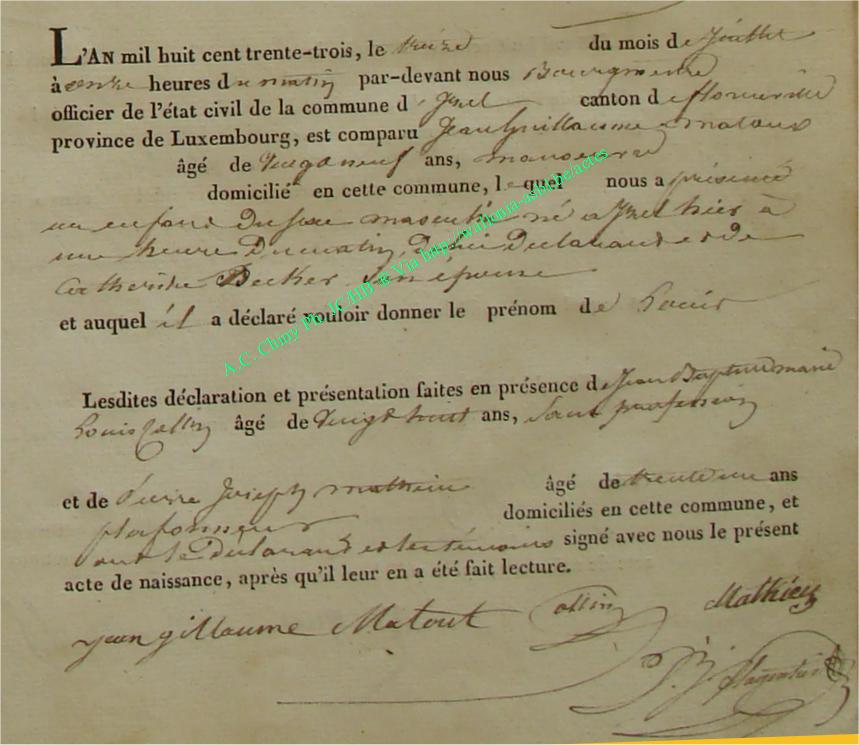 L'AN mil huit cent trente-trois, le treize du mois de Juillet
à onze heures du matin par-devant nous Bourgmestre
officier de l'état civil de la commune d'Izel canton de florenville
province de Luxembourg, est comparu Jean Guillaume matout
âgé de vingt neuf ans, manœuvre
domicilié en cette commune, lequel nous a présenté
un enfant du sexe masculin né a Izel hier à
une heure du matin, de lui Déclarant et de
Catherine Becker son épouse
et auquel il a déclaré vouloir donner le prénom de Louis
A.C. Chiny Pn JC/HB ® Via http://wallonia-asbl.be/actes
Lesdites déclaration et présentation faites en présence de Jean Baptiste marie
Louis Collin âgé de vingt huit ans, sans profession
et de Pierre Joseph mathieu âgé de trente un ans
plafonneur domiciliés en cette commune, et
ont le Déclarant et les témoins signé avec nous le présent
acte de naissance, après qu'il leur en a été fait lecture.
jean gillaume Matout Collin Mathieu
P. J.